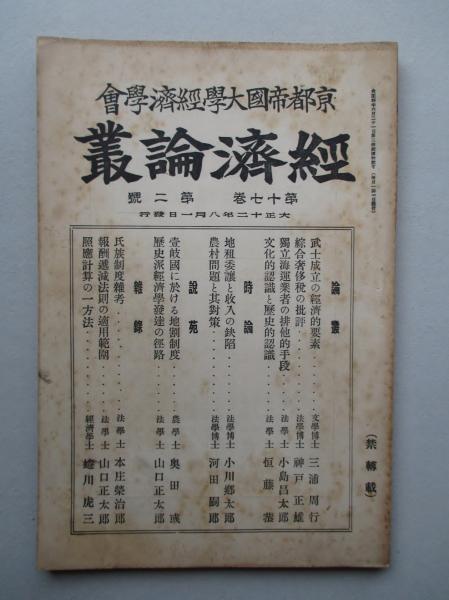 京都帝國大學經濟學會
經濟論叢
第十七卷 第二號
大正十二年八月一日發行
論叢
武士成立の經濟的要素・・・・文學博士 三浦周行
綜合奢侈税の批評・・・・法學博士 神戸正雄
獨立海運業者の排他的手段・・・・法學士 小島昌太郎
文化的認識と歷史的認識・・・・法學士 恒藤恭
時論
地租委讓と收入の缺陷・・・・法學博士 小川鄕太郎
農村問題と其對策・・・・法學博士 河田嗣郎
說苑
壹岐國に於ける地割制度・・・・農學士 奥田彧
歷史派經濟學發達の徑路・・・・法學士 山口正太郎
雜錄
氏族制度雜考・・・・法學士 本庄榮治郎
報酬遞減法則の適用範圍・・・・法學士 山口正太郎
照應計算の一方法・・・・經濟學士 蜷川虎三
(禁轉載)